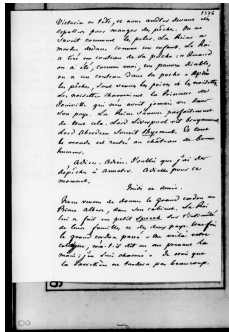 1376
Victoria en tête, et nous arrêter devant des
espaliers pour manger des pêches. On ne
savait comment les peler. La Reine a
mordu dedans comme un enfant. Le Roi
a tiré un couteau de sa poche : « Quand
on a été, comme moi, un pauvre diable,
on a un couteau dans sa poche. » Après
les pêches, sont venues les poires et les noisettes
des noisettes charmaient la Princesse de
Joinville qui n'en avait jamais vu dans
son pays. La Reine s'amusait parfaitement
de tout cela. Lord Liverpool
Lord Aberdeen souriait Et tout
le monde est rentré au château de bonne
humeur.
Adieu. Adieu. J'oublie que j'ai des
dépêches à Adieu pour ce
moment.
Midi et demie.
Nous venons de donner le grand cordon au
Prince Albert, dans son cabinet. Le Roi
lui a fait un petit speech sur l'intimité
de leurs familles, et des deux pays. Une fois
le grand cordon passé « Me voilà votre
collègue, m'a-t-il dit en me prenant la
main ; j'en suis charmé. » Je crois que
la Jarretière ne tardera pas beaucoup.